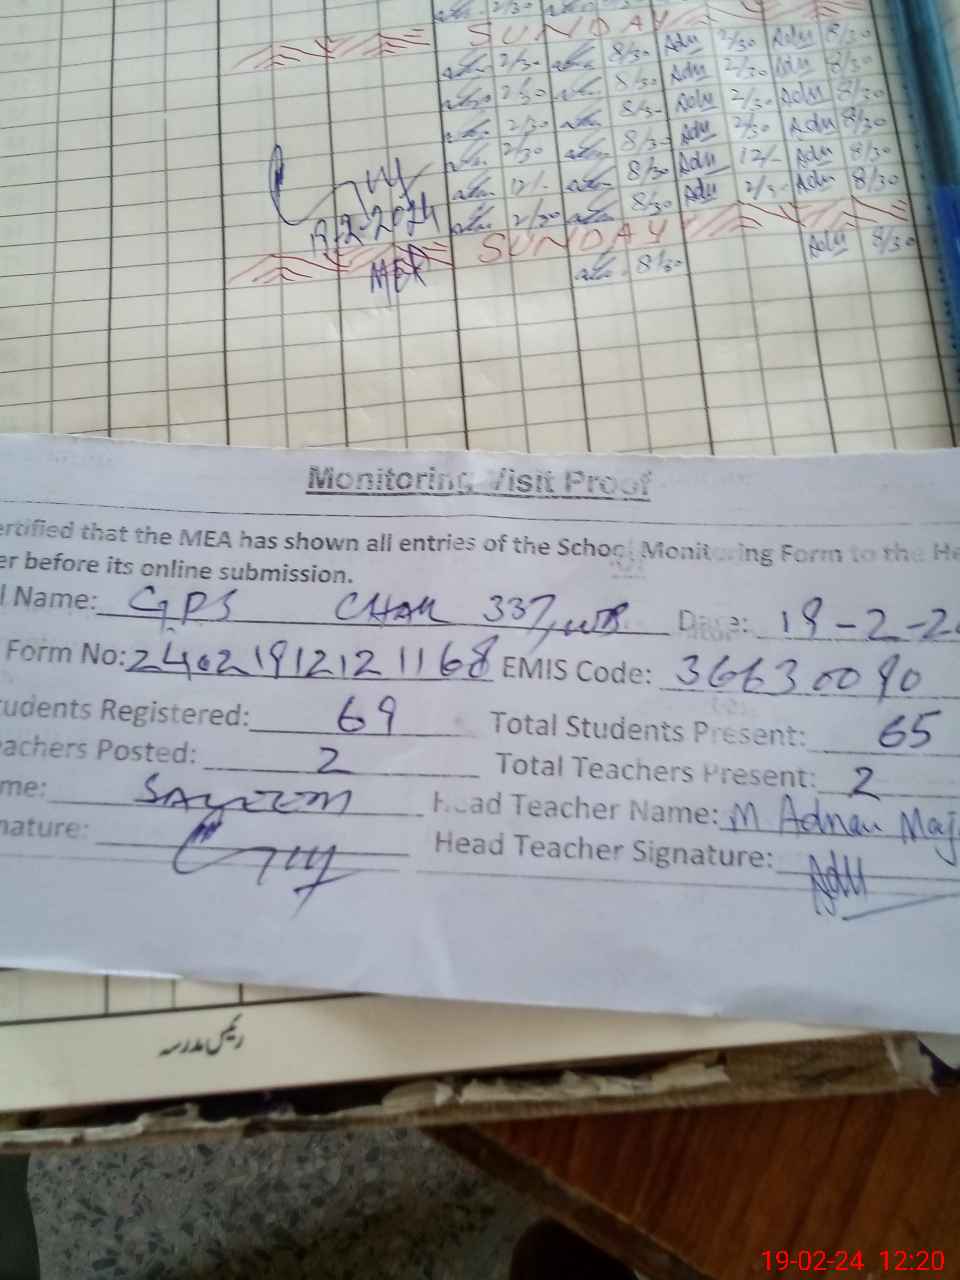 2/30
SUNDAY
2/30 8/30 Adu 2/30 Adu 8/30
2/30 8/30 Adu 2/30 Adu 8/30
2/30 8/30 Adu 2/30 Adu 8/30
2/30 8/30 Adu 2/30 Adu 8/30
12/- 8/30 Adu 12/- Adu 8/30
2/30 8/30 Adu 2/30 Adu 8/30
19-2-2024
SUNDAY
MEA
8/30 Adu 8/30
Monitoring Visit Proof
ertified that the MEA has shown all entries of the School Monitoring Form to the He
er before its online submission.
l Name: GPS CHAK 337/WB Date: 19-2-2
Form No: 2402191212 1168 EMIS Code: 36630090
udents Registered: 69 Total Students Present: 65
eachers Posted: 2 Total Teachers Present: 2
me: Head Teacher Name: M Adnan Maj
nature: Head Teacher Signature: Adu
رئیس مدرسہ
19-02-24 12:20